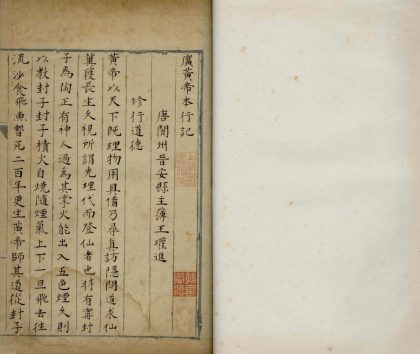 廣黃帝本行記
唐閬州晉安縣主簿王瓘進
修行道德
黃帝以天下既理物用具備乃尋真訪隱問道求仙
冀獲長生久視所謂先理代而登仙者也時有甯封
子為陶正有神人過為其掌火能出入五色煙久則
以教封子封子積火自燒隨煙氣上下一旦飛去往
流沙食飛魚暫死二百年更生黃帝師其道從封子